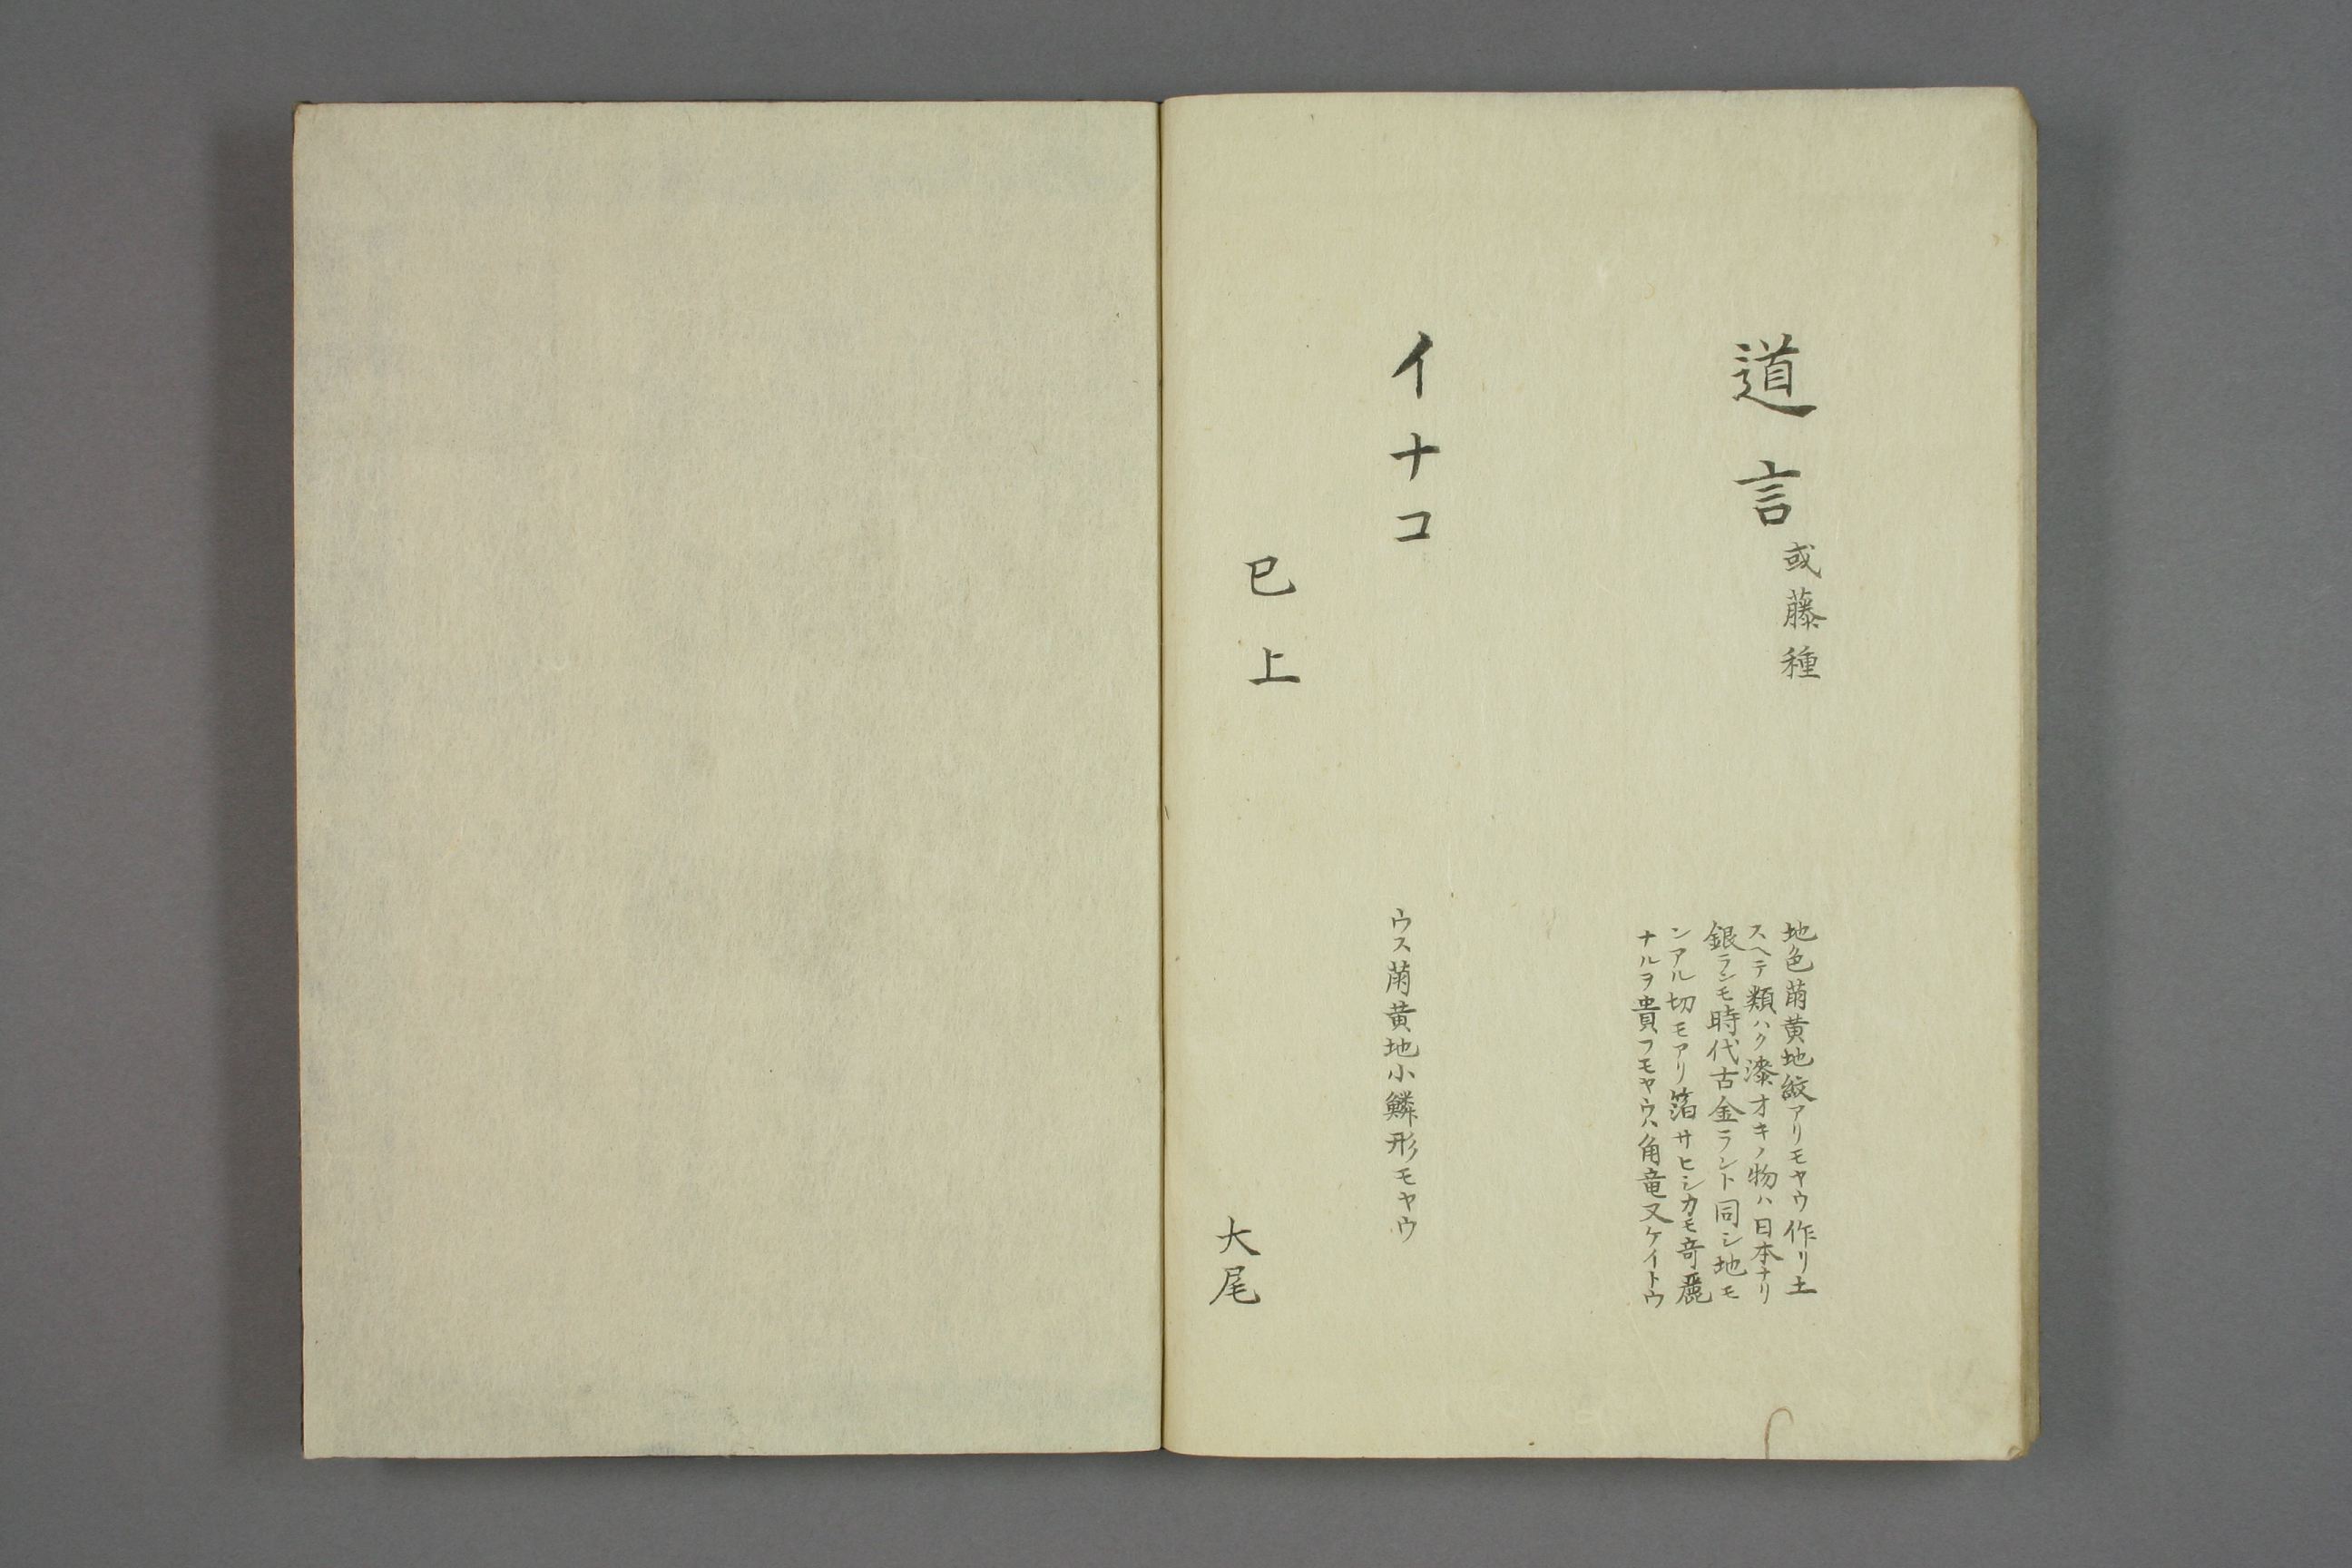 道言 或藤種
地色萠黄地紋アリモヤウ作リ土
スヘテ類ハク漆オキノ物ハ日本ナリ
銀ランモ時代古金ラント同シ地モ
ンアル切モアリ箔サヒシカモ竒麗
ナルヲ貴フモヤウハ角竜又ケイトウ
イナコ
ウス萠黄地小鱗形モヤウ
已上
大尾